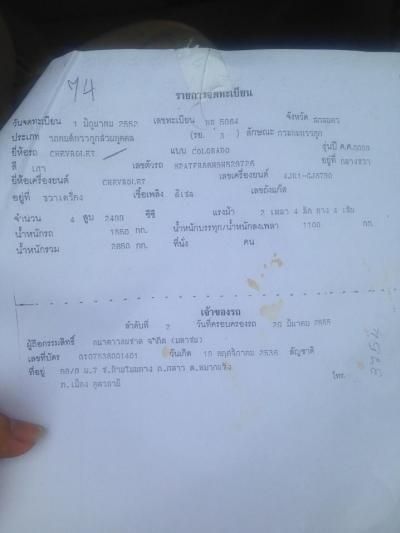 74
รายการจดทะเบียน
วันจดทะเบียน 1 มิถุนายน 2552 เลขทะเบียน 5064 จังหวัด
ประเภท รถยนต์บรรทุกส่วนบุคคล (รย. 3 ) ลักษณะ กระบะบรรทุก
ยี่ห้อรถ CHEVROLET แบบ COLORADO รุ่นปี ค.ศ.
สี เทา เลขตัวรถ อยู่ที่
ยี่ห้อเครื่องยนต์ CHEVROLET เลขเครื่องยนต์
อยู่ที่ ขวาเครื่อง เชื้อเพลิง ดีเซล เลขถังแก๊ส
จำนวน 4 สูบ 2499 ซีซี แรงม้า 2 เพลา 4 ล้อ ยาง 4 เส้น
น้ำหนักรถ 1550 กก. น้ำหนักบรรทุก/น้ำหนักลงเพลา 1100 กก.
น้ำหนักรวม 2650 กก. ที่นั่ง คน
เจ้าของรถ
ลำดับที่ 2 วันที่ครอบครองรถ 20 มีนาคม 2555
ผู้ถือกรรมสิทธิ์ ธนาคารธนชาต จำกัด (มหาชน)
เลขที่บัตร 0107536001401 วันเกิด พฤศจิกายน 2536 สัญชาติ
ที่อยู่ ม.7 โทร.
อ.เมือง
3754